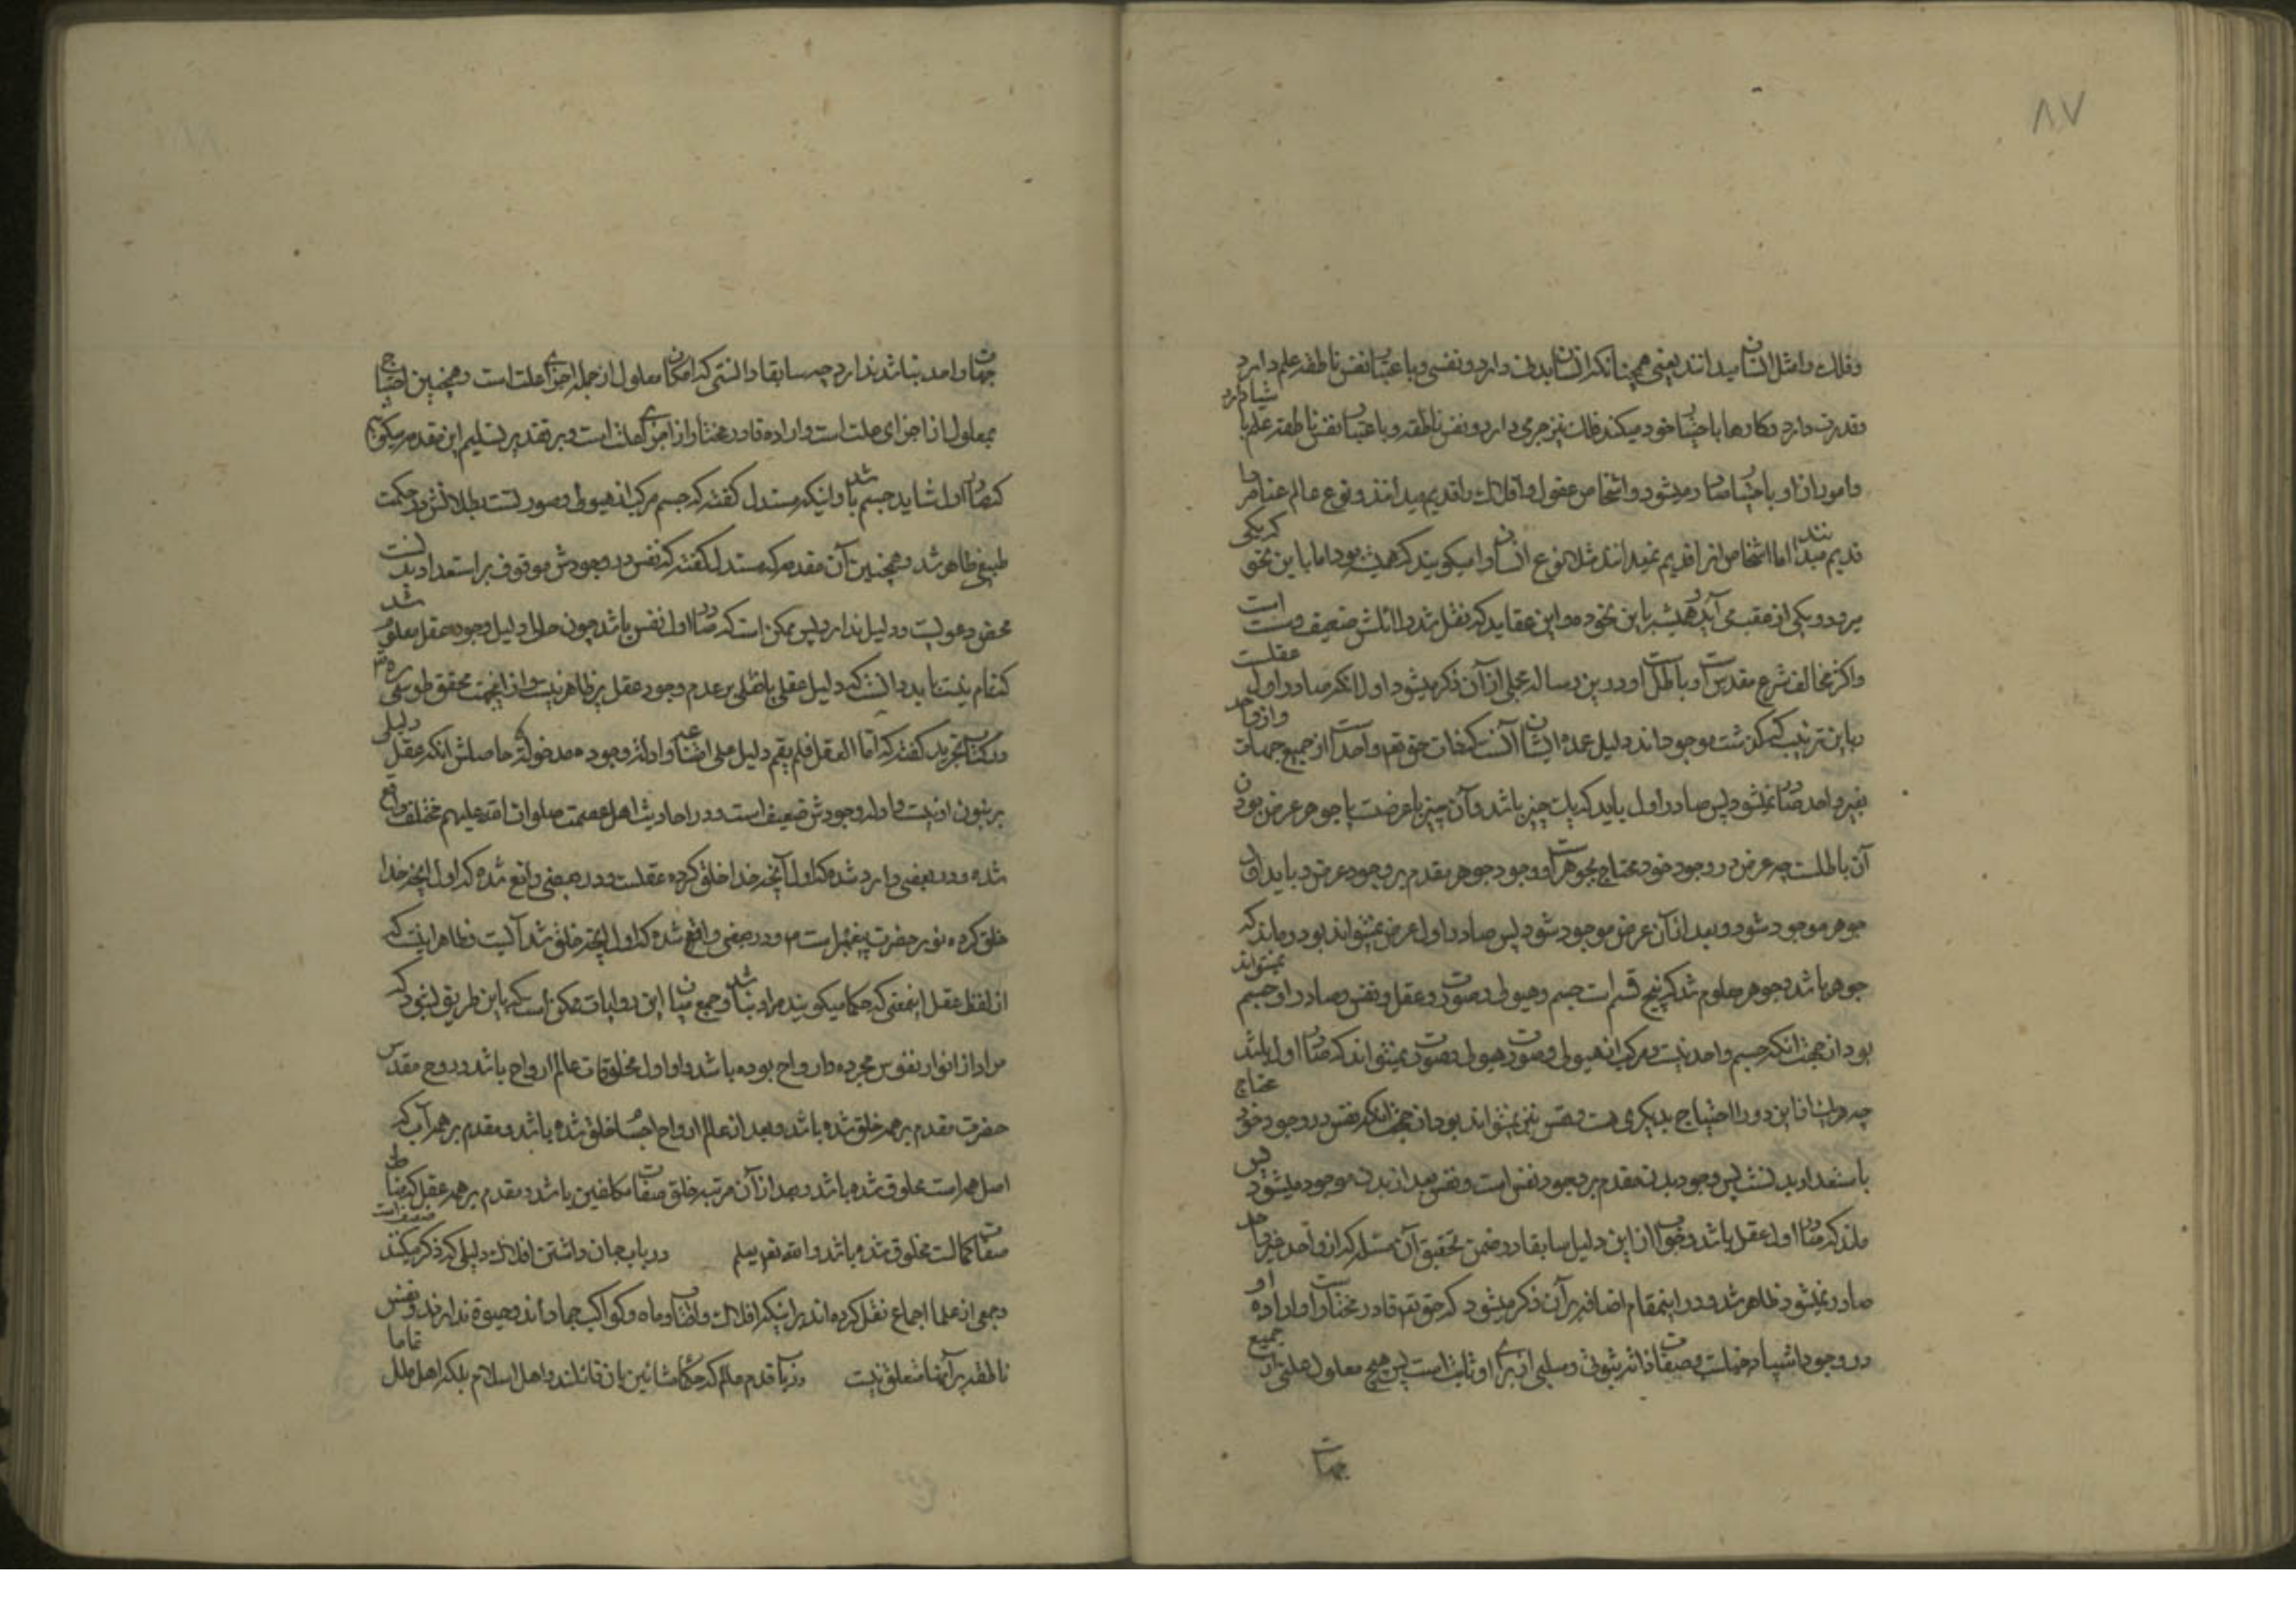 ۸۷
وفلک را مثل انسان میدانند یعنی همچنانکه انسان بدن دارد و نفسی و باعتبار نفس ناطقه علم دارد
و قدرت دارد و کارها باختیار خود میکند فلک نیز جرمی دارد و نفس ناطقه و باعتبار نفس ناطقه علم باشیا دارد
و امور از او باختیار صادر میشود و اشخاص عقول و افلاک را قدیم میدانند و نوع عالم عناصر را
قدیم میدانند اما اشخاص انرا قدیم نمیدانند مثلا نوع انسان را میگویند که همیشه بود اما باین نحو که یکی
میرود و یکی از عقب می آید و همیشه باین نحو بوده و این عقاید که نقل شد دلائلش ضعیف و سست است
و اکثر مخالف شرع مقدس است و باطل است و درین رساله مجملی از آن ذکر میشود اول آنکه صادر اول عقلست
و باین ترتیب که گذشت موجود اند دلیل عمده ایشان آنست که ذات حق تعالی واحد است از جمیع جهات و از واحد
بغیر واحد صادر نمیشود پس صادر اول باید که یک چیز باشد و آن چیز یا عرضست یا جوهر عرض بودن
آن باطلست چه عرض در وجود خود محتاج بجوهر است و وجود جوهر مقدم بر وجود عرض و باید اول
جوهر موجود شود و بعد از آن عرض موجود شود پس صادر اول عرض نمیتواند بود و ماند که
جوهر باشد و جوهر معلوم شد که پنج قسم است جسم و هیولی و صورت و عقل و نفس و صادر اول جسم نمیتواند
بود از جهت آنکه جسم واحد نیست و مرکب از هیولی و صورت و هیولی و صورت نمیتواند که صادر اول باشد
چه هریک از این دو را احتیاج بدیگری هست و نفس نیز نمیتواند بود از جهت آنکه نفس در وجود خود محتاج
باستعداد بدنست پس وجود بدن مقدم بر وجود نفس است و نفس بعد از بدن موجود میشود پس
ماند که صادر اول عقل باشد و جواب از این دلیل سابقا در ضمن تحقیق آن مسئله که از واحد غیر واحد
صادر نمیشود ظاهر شد و در اینمقام اضافه بر آن ذکر میشود که حق تعالی قادر مختار است و اراده او
در وجود اشیا دخیلست و صفات زائد ثبوتی و سلبی از برای او ثابت است پس هیچ معلول علتی از جمیع
جهات
جهات واحد نباشد ندارد چه سابقا دانستی که امکان معلول از جمله اجزای علت است و همچنین احتیاج
بمعلول از اجزای علت است و اراده قادر مختار از اجزای علت است و بر تقدیر تسلیم این مقدمه میگوئیم
که صادر اول شاید جسم باشد و اینکه مستدل گفته که جسم مرکب از هیولی و صورتست بطلانش در حکمت
طبیعی ظاهر شد و همچنین آن مقدمه که مستدل گفته که نفس در وجودش موقوف بر استعداد بدنست
محض دعویست و دلیل ندارد پس ممکن است که صادر اول نفس باشد چون حال دلیل وجود عقل معلوم شد
کنمقام نیست باید دانست که دلیل عقلی یا نقلی بر عدم وجود عقل نیز ظاهر نیست و از اینجهت محقق طوسی ره
در کتاب تجرید گفته که اما العقل فلم یقم دلیل علی امتناعه و ادلة وجوده مدخولة حاصلش آنکه عقل دلیلی
بر نبودن او نیست و ادله وجودش ضعیف است و در احادیث اهل عصمت صلوات الله علیهم مختلف واقع
شده و در بعضی وارد شده که اول آنچه خدا خلق کرده عقلست و در بعضی واقع شده که اول انچه خدا
خلق کرده نور حضرت پیغمبر است ص و در بعضی واقع شده که اول انچه خلق شد آبست و ظاهر اینست که
از لفظ عقل اینمعنی که حکما میگویند مراد نباشد و جمع میان این روایات ممکن است که باین طریق بشود که
مراد از انوار نفوس مجرده و ارواح بوده باشد و اول مخلوقات عالم ارواح باشد و روح مقدس
حضرت مقدم بر همه خلق شده باشد و بعد از عالم ارواح اجسام خلق شده باشد و مقدم بر همه آب که
اصل همه است مخلوق شده باشد و بعد از آن مرتبه خلق صفات مکلفین باشد و مقدم بر همه عقل که مناط
صفات کمالست مخلوق شده باشد و الله تعالی یعلم در باب جان داشتن افلاک دلیلی که ذکر میکنند ضعیف است
و جمعی از علما اجماع نقل کرده اند بر اینکه افلاک و افتاب و ماه و کواکب جماد اند و حیوة ندارند و نفس
ناطقه بر آنها متعلق نیست در باب قدم عالم که حکماء مشائین بان قائلند و اهل اسلام بلکه اهل ملل تماما